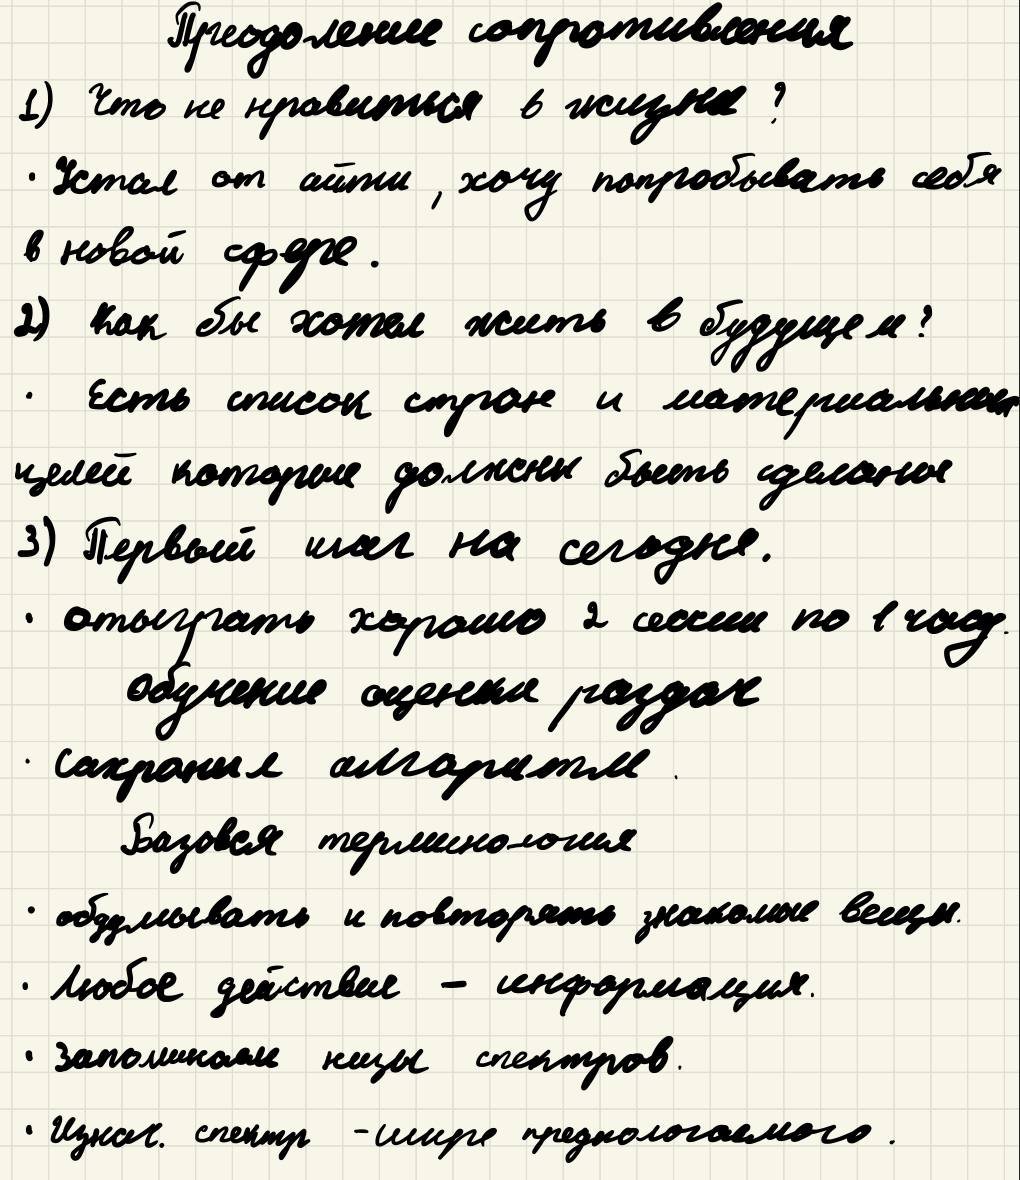 Преодоление сопротивления
1) Что не нравиться в жизни?
· Устал от айти, хочу попробывать себя
в новой сфере.
2) Как бы хотел жить в будущем?
· Есть список стран и материальных
целей которые должны быть сделаны
3) Первый шаг на сегодня.
· отыграть хорошо 2 сессии по 1 часу.
Обучение оценки раздач
· Сахранил алгоритм.
Базовся терминология
· обдумывать и повторять знакомые вещи.
· Любое действие - информация.
· Запоминаем низы спектров.
· Изнач. спектр - шире предпологаемого.